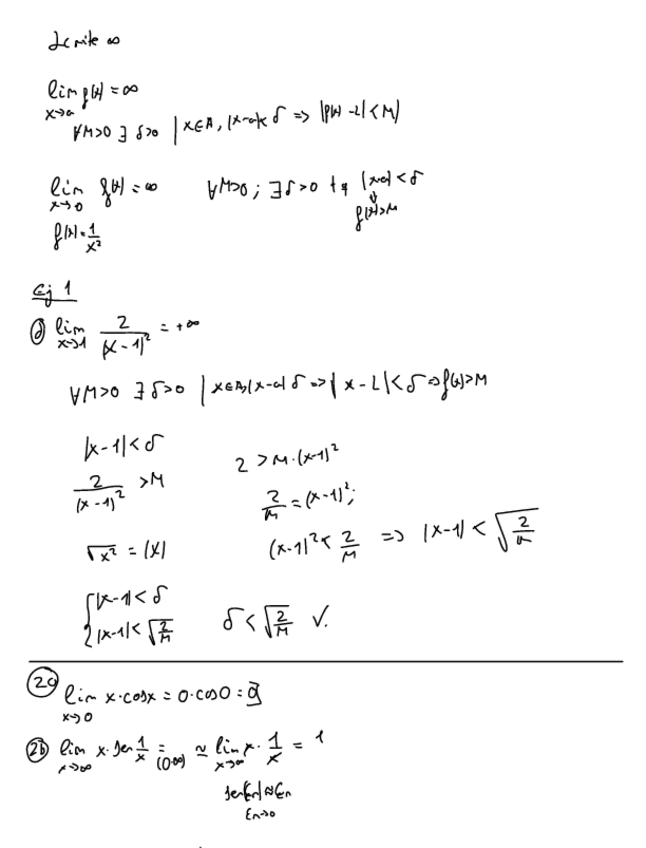 límite ∞
lim f(x) = ∞
x→a
∀M>0 ∃ δ>0 | x∈A, |x-a|< δ => |f(x) - L| < M)
lim f(x) = ∞ ∀M>0; ∃δ>0 tq |x-a| < δ
x→0 ⇓
f(x) = 1/x² f(x)>M
Ej 1
d) lim 2/(x-1)² = +∞
x→1
∀M>0 ∃ δ>0 | x∈A, |x-a| δ => | x - L| < δ => f(x)>M
|x-1| < δ
2 > M·(x-1)²
2/(x-1)² > M
2/M = (x-1)²;
√x² = |x| (x-1)² < 2/M => |x-1| < √(2/M)
{ |x-1| < δ
|x-1| < √(2/M) δ < √(2/M) ✓.
2a lim x·cosx = 0·cos0 = 0
x→0
2b lim x·sen 1/x = (0·∞) ≈ lim x· 1/x = 1
x→∞ x→∞
sen(εn) ≈ εn
εn→0